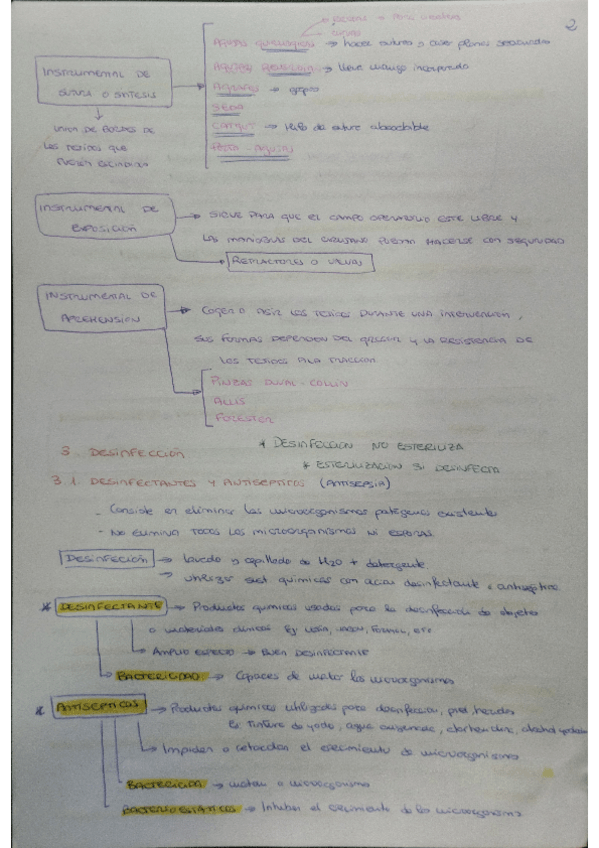 2
curvas
Agujas quirurgicas → hacer sutura y coser planos
→ lleve mango incorporado
INSTRUMENTAL DE
SUTURA O SINTESIS
Agrafes → grapas
SEDA
CATGUT → Hilo de sutura absorbible
PORTA - AGUJAS
UNION DE BORDES DE
LOS TEJIDOS QUE
INSTRUMENTAL DE
EXPOSICIÓN
→ SIRVE PARA QUE EL CAMPO OPERATORIO ESTE LIBRE Y
LAS MANIOBRAS DEL CIRUJANO PUEDAN HACERSE CON SEGURIDAD
RETRACTORES O VALVAS
INSTRUMENTAL DE
APREHENSION
→ COGER O ASIR LOS TEJIDOS DURANTE UNA INTERVENCION,
SUS FORMAS DEPENDEN DEL GROSOR Y LA RESISTENCIA DE
LOS TEJIDOS A LA TRACCION
PINZAS DUVAL - COLLIN
ALLIS
FORESTER
3. DESINFECCIÓN
* DESINFECCION NO ESTERILIZA
* ESTERILIZACION SI DESINFECTA
3.1. DESINFECTANTES Y ANTISEPTICOS (ANTISEPSIA)
- Consiste en eliminar los microorganismos patógenos existentes
- NO ELIMINA TODOS LOS MICROORGANISMOS NI ESPORAS
DESINFECIÓN → lavado y cepillado de H2O + detergente
→ utilizar sust quimicas con acción desinfectante o antiséptica
* DESINFECTANTE → Productos quimicos usados para la desinfección de objetos
o materiales clinicos Ej: lejía, formol, etc
→ AMPLIO ESPECTRO → BUEN DESINFECTANTE
→ BACTERICIDAD → Capaces de matar los microorganismos
* ANTISEPTICOS → Productos quimicos utilizados para desinfeccion, piel, heridas
Ej: Tintura de yodo, agua oxigenada, clorhexidina, alcohol
→ Impiden o retardan el crecimiento de microorganismo
BACTERICIDA → matan a microorganismo
BACTERIOESTATICOS → Inhiben el crecimiento de los microorganismo